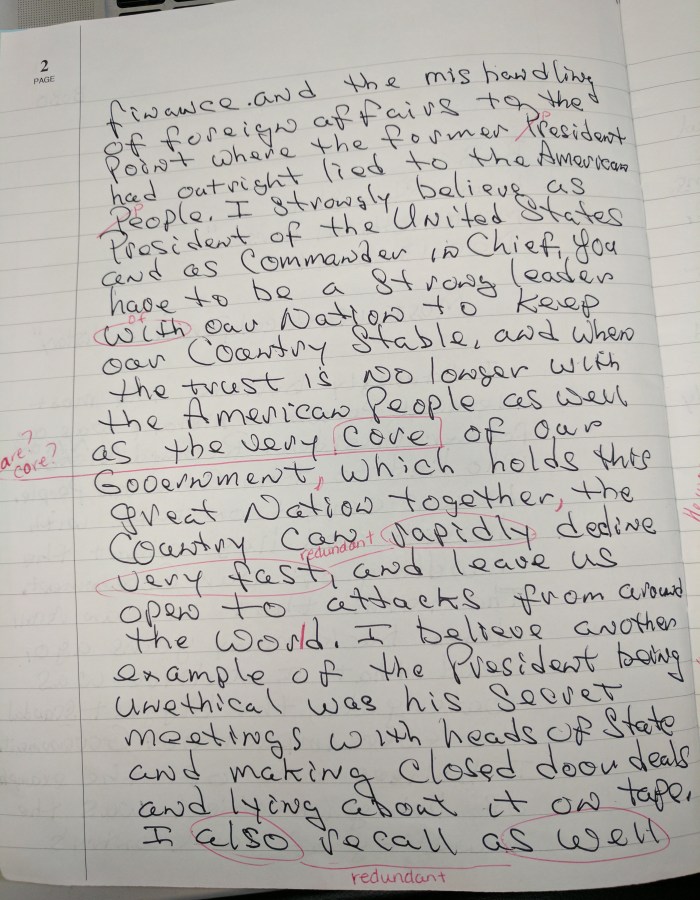 2
PAGE
finance. and the mishandling
of foreign affairs to the
Point where the former President
had outright lied to the American
People. I strongly believe as
President of the United States
and as Commander in Chief, you
have to be a strong leader
of
with our Nation to keep
our Country stable, and when
the trust is no longer with
the American People as well
as the very core of our
are?
core?
Government, which holds this
great Nation together, the
Country can rapidly decline
redundant
very fast, and leave us
open to attacks from around
the World. I believe another
example of the President being
unethical was his Secret
meetings with heads of State
and making closed door deals
and lying about it on tape.
I also recall as well
redundant